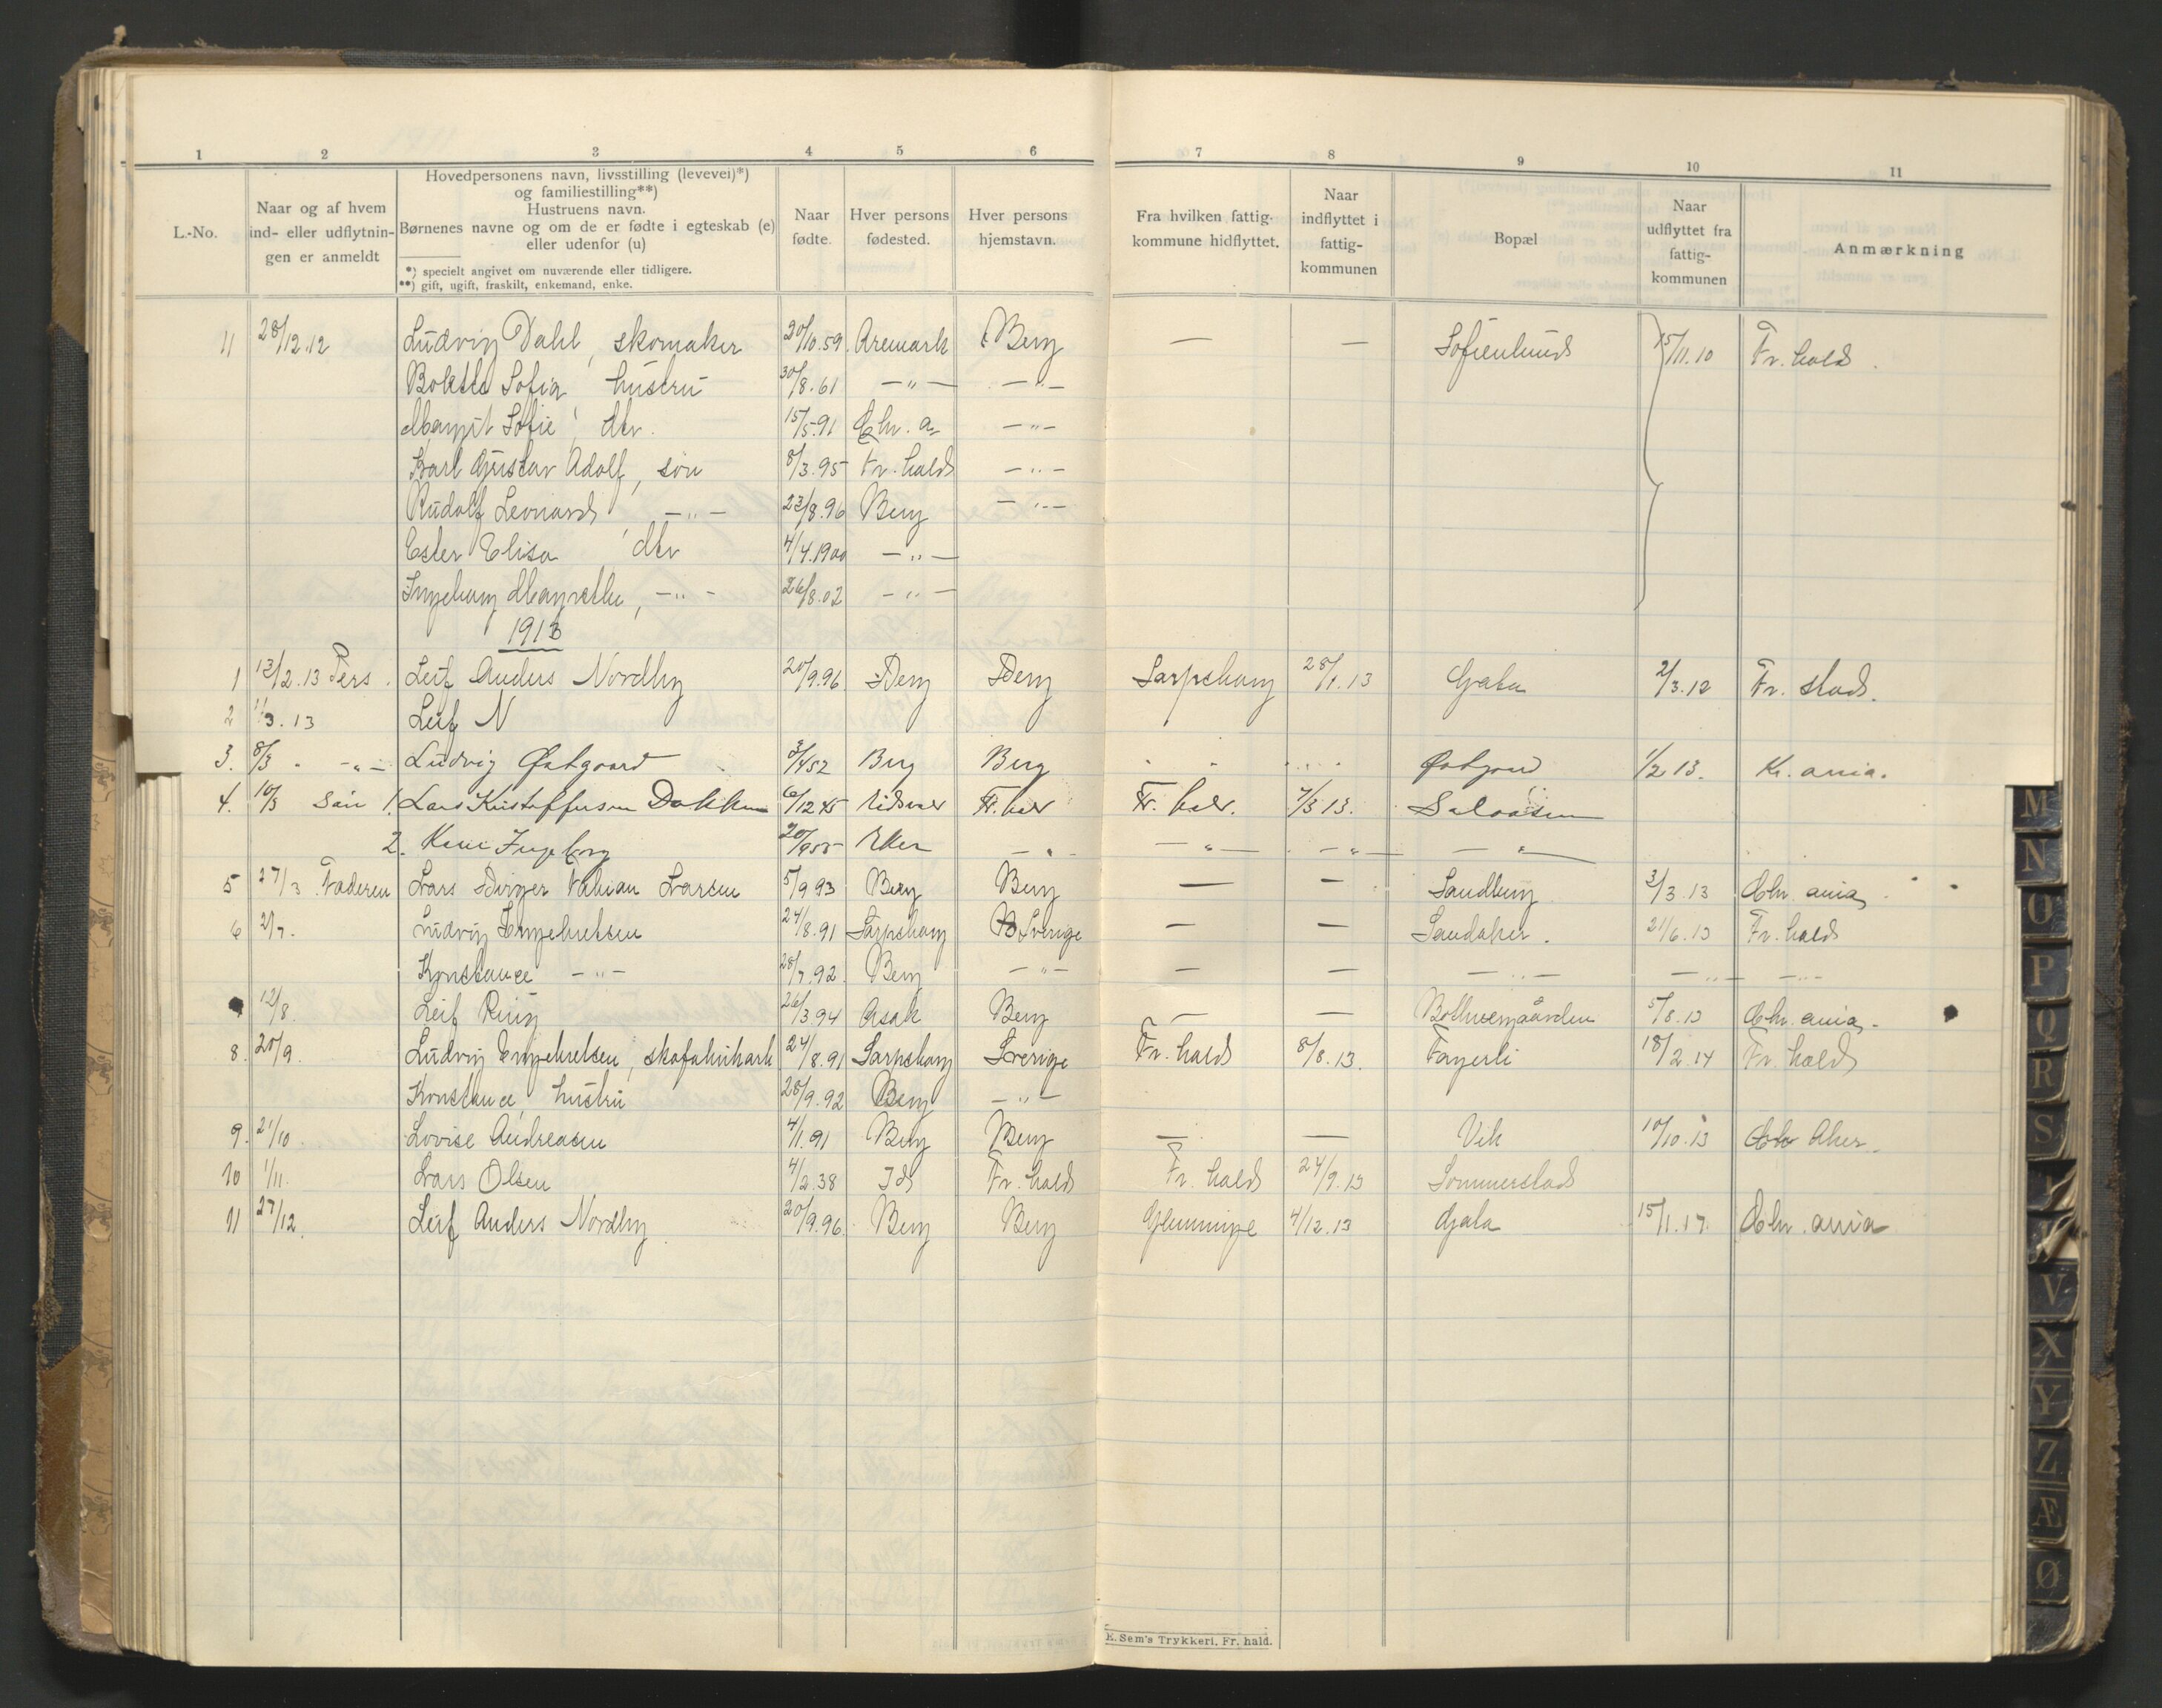 1 2 3 4 5 6 7 8 9 10 11
L.-No.
Naar og af hvem
ind- eller udflytnin-
gen er anmeldt
Hovedpersonens navn, livsstilling (levevei)*)
og familiestilling**)
Hustruens navn.
Børnenes navne og om de er fødte i egteskab (e)
eller udenfor (u)
*) specielt angivet om nuværende eller tidligere.
**) gift, ugift, fraskilt, enkemand, enke.
Naar
fødte.
Hver persons
fødested.
Hver persons
hjemstavn.
Fra hvilken fattig-
kommune hidflyttet.
Naar
indflyttet i
fattig-
kommunen
Bopæl
Naar
udflyttet fra
fattig-
kommunen
Anmærkning
11 28/12.12 Ludvig Dahl, skomaker 20/10.59. Aremark Berg — — Sofienlund 15/11.10 Fr. hald.
Sofia hustru 30/8.61 —"— —"—
Margit Sofie, dtr. 15/5.91 Chr. a. —"—
Karl Gustav Adolf, søn 8/3.95 Fr. hald —"—
Rudolf Leonard —"— 23/8.96 Berg —"—
Ester Elisa, dtr 4/4.1900 —"—
Ingeborg Margrethe, —"— 26/8.02 —"—
1913
1 13/2.13 Pers. Leif Anders Nordby 20/9.96 Berg Berg Sarpsborg 28/1.13 Gata 2/3.12 Fr. stad.
2 1/3.13 Leif N
3. 8/3 " —"— Ludvig Østgaard 3/4 52 Berg Berg " " " " Østgaard 1/2 13. Kr. ania.
4. 10/3 Søn 1. Lars Kristoffersen Dokken 6/12 45 Eidsvol Fr. hald Fr. hald. 7/3 13.
2. Ingeborg 20/9 55 Eker —"— —"— —"— —"—
5 27/3 Faderen Lars Birger Fabian Larsen 5/9 93 Berg Berg — — Sandberg 3/3.13 Chr. ania
6 2/7. Ludvig Engebretsen 24/8.91 Sarpsborg Sverige — — Sandaker. 21/6.13 Fr. hald
Konstance —"— 28/9.92. Berg —"— — — —"— —"— —"—
12/8. Leif Ring 26/3.94 Asak Berg — — 5/8.13 Chr. ania.
8. 20/9. Ludvig Engebretsen, skofabrikarb 24/8.91 Sarpsborg Sverige Fr. hald 8/8.13. Fagerli 18/2.14 Fr. hald
Konstance, hustru 28/9.92 Berg —"—
9. 21/10. Lovise Andreasen 4/1.91 Berg Berg — — Vik 10/10.13 Chr Aker.
10 1/11. Lars Olsen 4/2.38 Id Fr. hald Fr. hald 24/9.13 Sommerstad
11 27/12. Leif Anders Nordby 20/9.96. Berg Berg Glemminge 4/12.13 Gata 15/1.17. Chr. ania
E. Sem's Trykkeri, Fr. hald.
M
N
O
P
Q
R
S
V
X
Y
Z
Æ
Ø